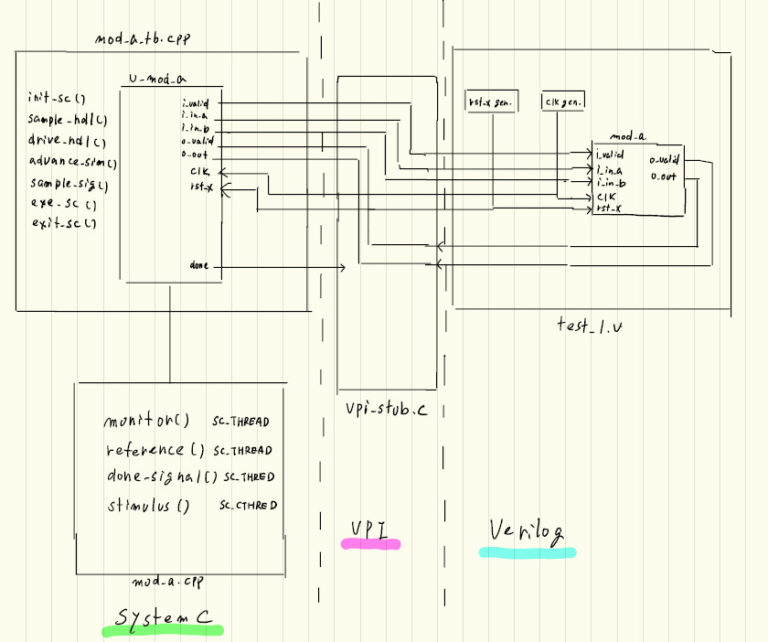 mod_a_tb.cpp
u_mod_a
init_sc()
sample_hdl()
drive_hdl()
advance_sim()
sample_sig()
exe_sc()
exit_sc()
i_valid
i_in_a
i_in_b
o_valid
o_out
clk
rst_x
done
monitor() SC_THREAD
reference() SC_THREAD
done_signal() SC_THRED
stimulus() SC_CTHRED
mod_a.cpp
System C
vpi_stub.c
VPI
rst_x gen.
clk gen.
mod_a
i_valid
i_in_a
i_in_b
clk
rst_x
o_valid
o_out
test_1.v
Verilog